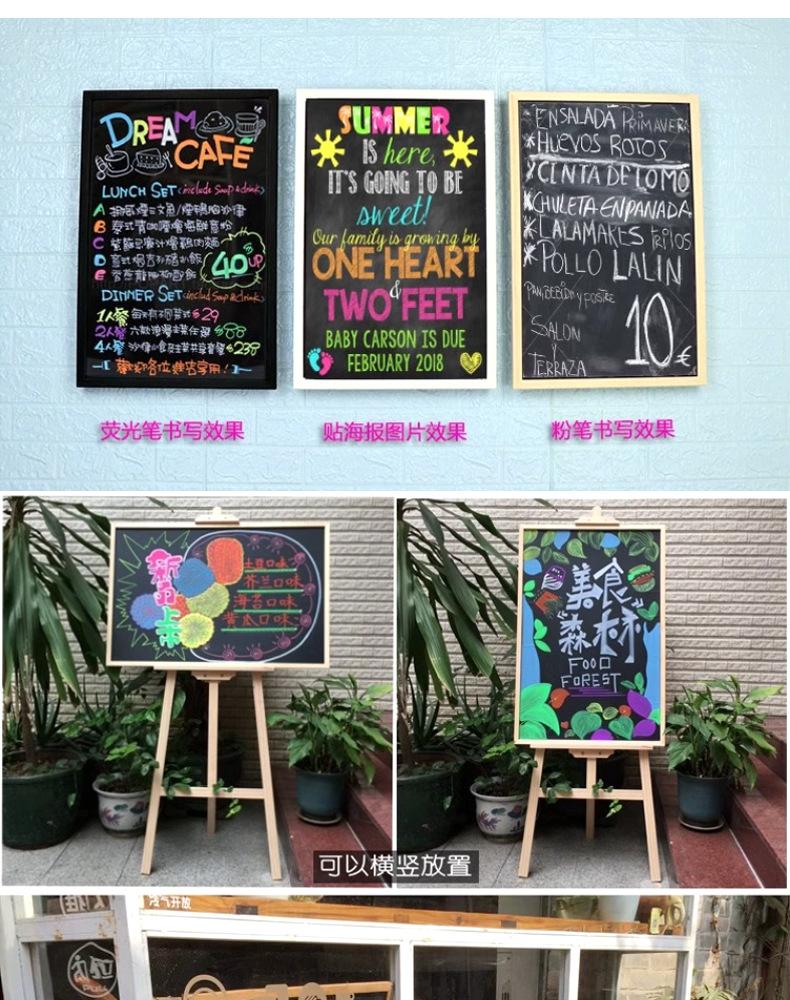 DREAM
CAFÉ
LUNCH SET (include Soup & drink)
A
B
C
D
E
40 UP
DINNER SET (includ Soup & drink)
1人餐 $29
2人餐
4人餐 $239
SUMMER
IS here,
IT'S GOING TO BE
sweet!
Our family is growing by
ONE HEART
&
TWO FEET
BABY CARSON IS DUE
FEBRUARY 2018
ENSALADA PRIMAVERA
*HUEVOS ROTOS
*CINTA DE LOMO
*CHULETA EMPANADA
*CALAMARES FRITOS
*POLLO LALIN
PAN, BEBIDA y POSTRE
10€
SALON
Y
TERRAZA
荧光笔书写效果
贴海报图片效果
粉笔书写效果
新品上市
土豆口味
芥兰口味
海苔口味
黄瓜口味
美食
森林
FOOD
FOREST
可以横竖放置
冷气开放
PULL